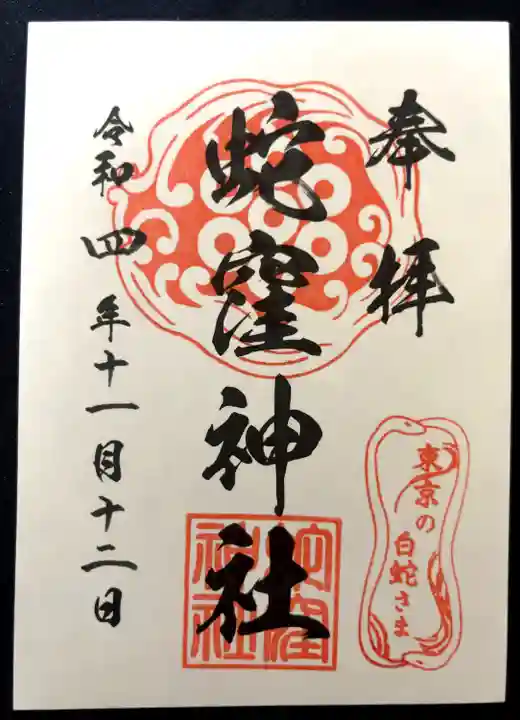 奉拝
東京の
白蛇さま
蛇窪神社
蛇窪
神社
令和四年十一月十二日